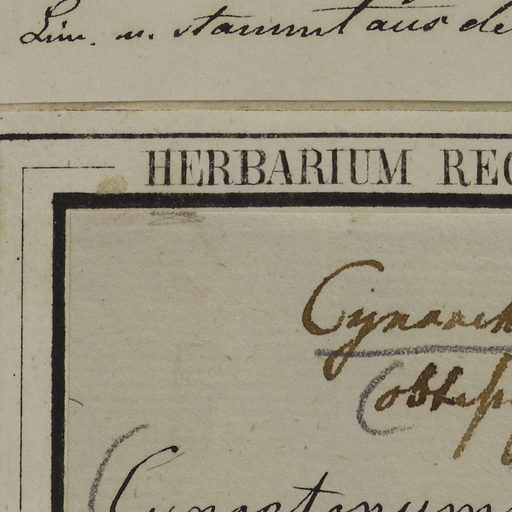 Lin. u. stammt aus de
HERBARIUM REG
Cynanch
(obtusif
(Cynoctonum